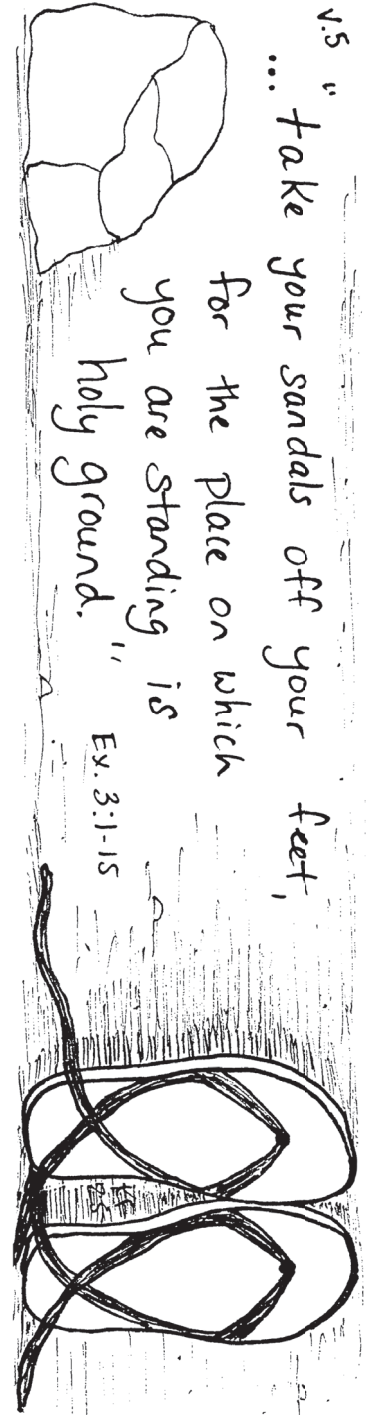 v.5 "... take your sandals off your feet,
for the place on which
you are standing is
holy ground."
Ex. 3:1-15